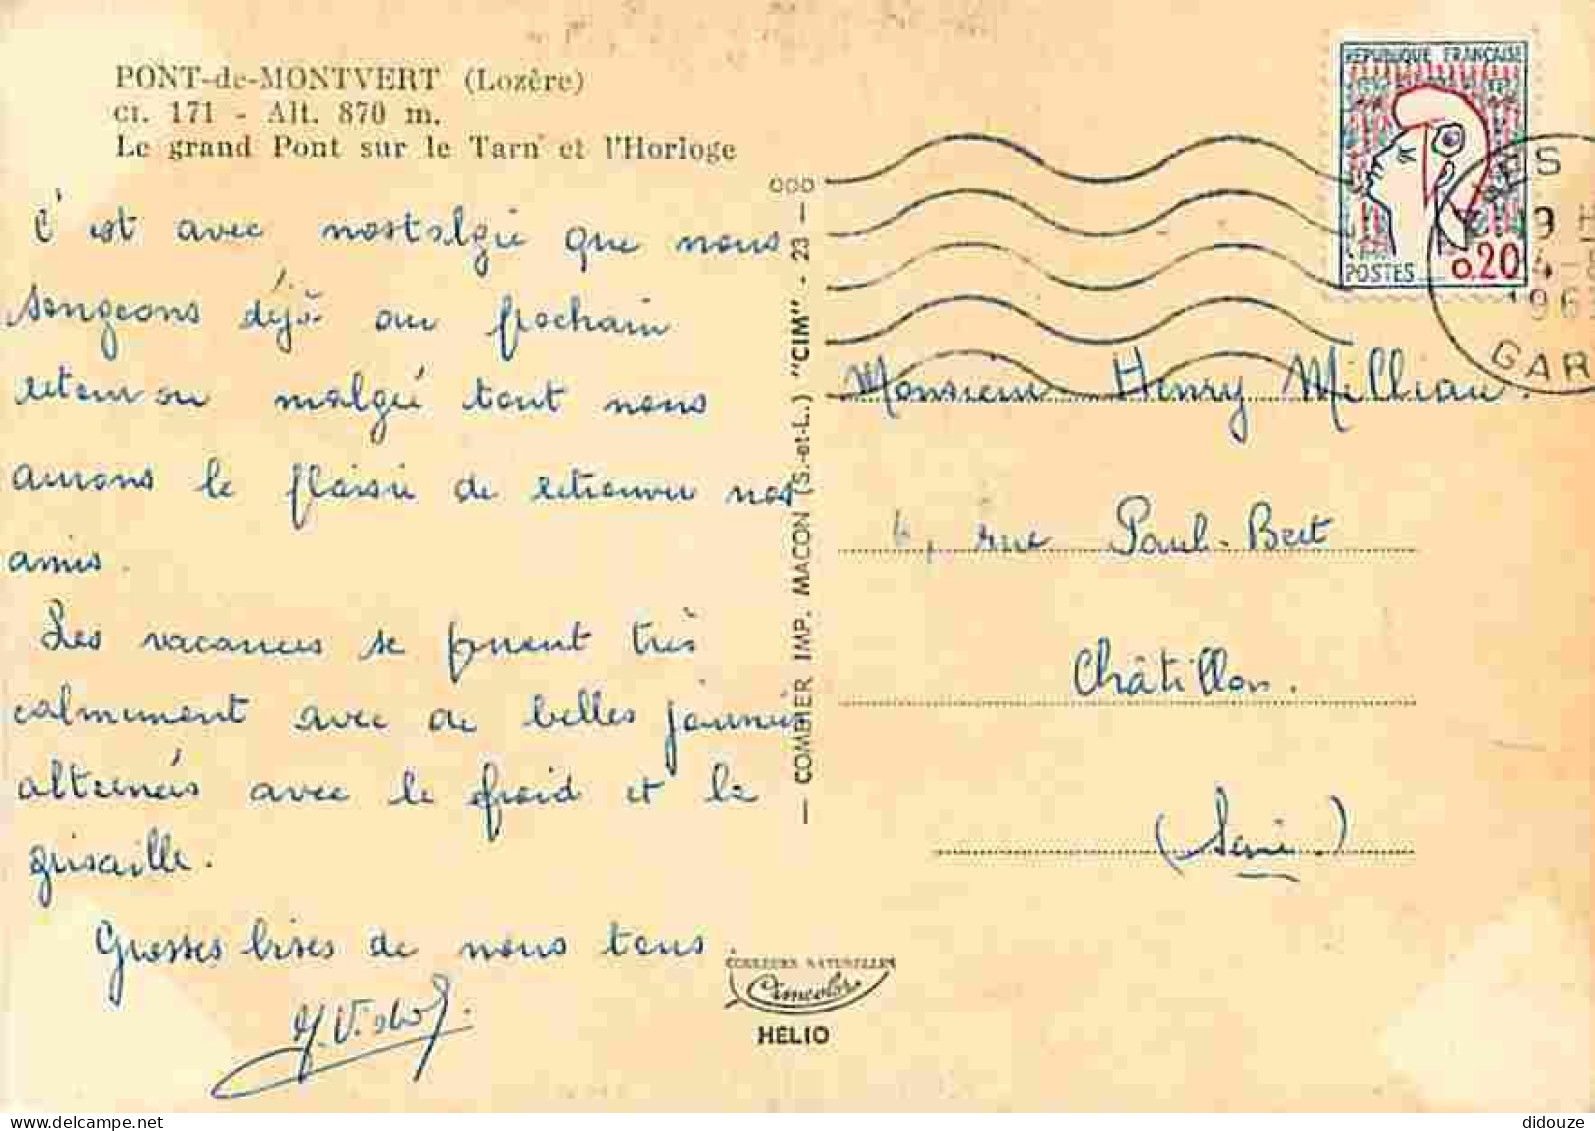 PONT-de-MONTVERT (Lozère)
CT. 171 - Alt. 870 m.
Le grand Pont sur le Tarn et l'Horloge
C'est avec nostalgie que nous
songeons déjà au prochain
retour ou malgré tout nous
aurons le plaisir de retrouver nos
amis.
Les vacances se firent très
calmement avec de belles journées
alternées avec le froid et la
grisaille.
Grosses bises de nous tous.
— COMBIER IMP. MACON (S.-et-L.) "CIM" - 23 —
COULEURS NATURELLES
Cimcolor
HELIO
RÉPUBLIQUE FRANÇAISE
POSTES 0,20
GAR
Monsieur Henry Milliau.
rue Paul-Bert
Châtillon.
(Seine)
didouze